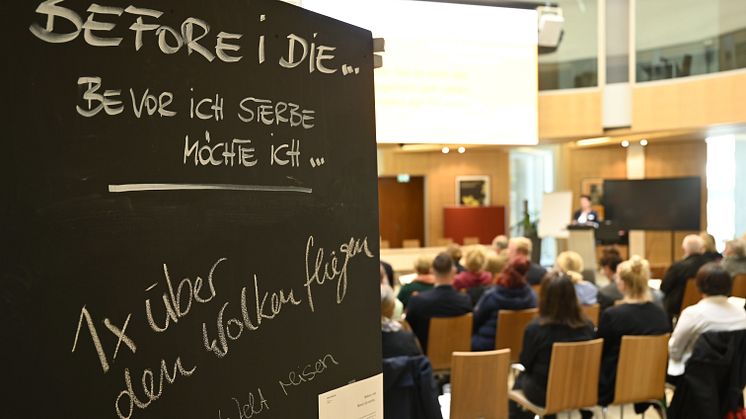 BEFORE i DiE...
BEVOR iCH STERBE
MÖCHTE iCH...
1x über
den Wolken fliegen
Welt reisen